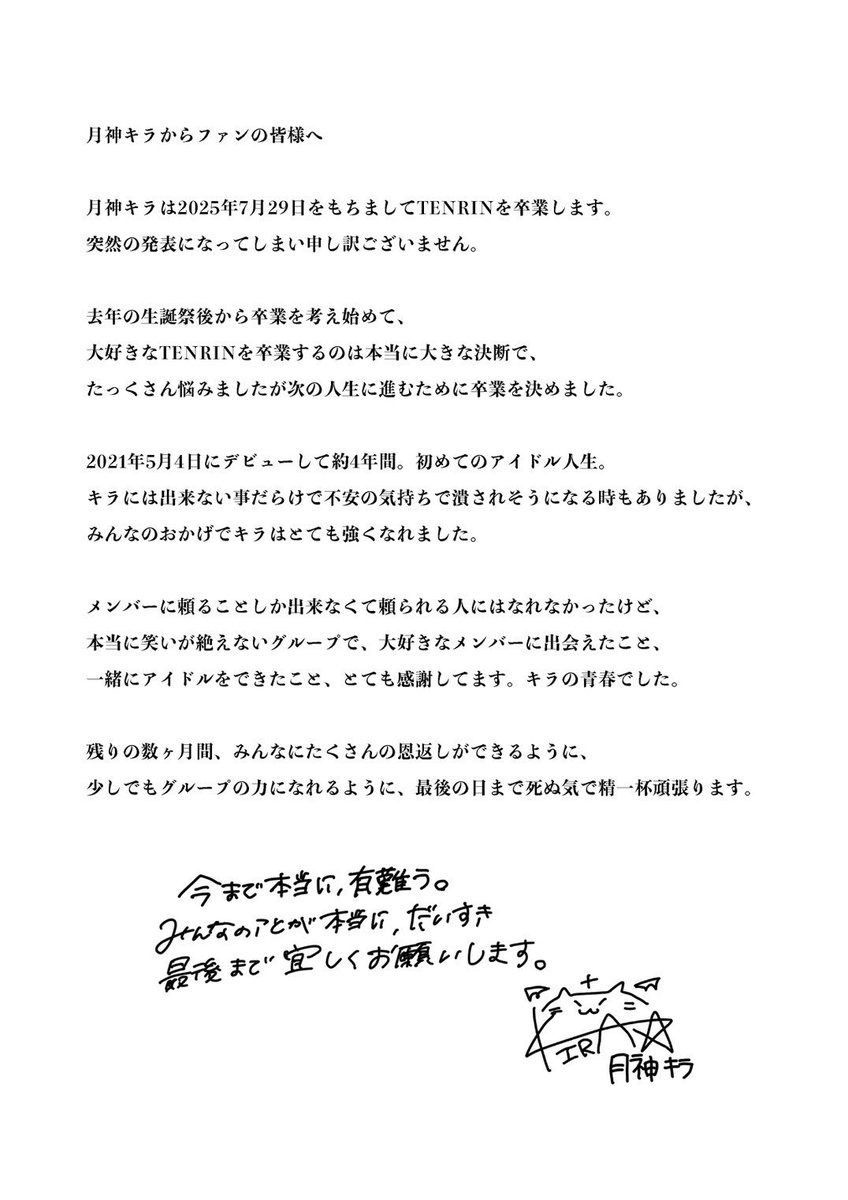 月神キラからファンの皆様へ
月神キラは2025年7月29日をもちましてTENRINを卒業します。
突然の発表になってしまい申し訳ございません。
去年の生誕祭後から卒業を考え始めて、
大好きなTENRINを卒業するのは本当に大きな決断で、
たっくさん悩みましたが次の人生に進むために卒業を決めました。
2021年5月4日にデビューして約4年間。初めてのアイドル人生。
キラには出来ない事だらけで不安の気持ちで潰されそうになる時もありましたが、
みんなのおかげでキラはとても強くなれました。
メンバーに頼ることしか出来なくて頼られる人にはなれなかったけど、
本当に笑いが絶えないグループで、大好きなメンバーに出会えたこと、
一緒にアイドルをできたこと、とても感謝してます。キラの青春でした。
残りの数ヶ月間、みんなにたくさんの恩返しができるように、
少しでもグループの力になれるように、最後の日まで死ぬ気で精一杯頑張ります。
今まで本当に,有難う。
みんなのことが本当に,だいすき
最後まで宜しくお願いします。
KIRA
月神キラ